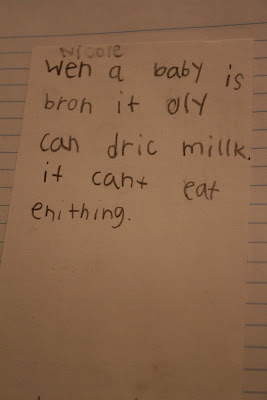 Nicole
wen a baby is
bron it oly
can dric millk.
it cant eat
enithing.